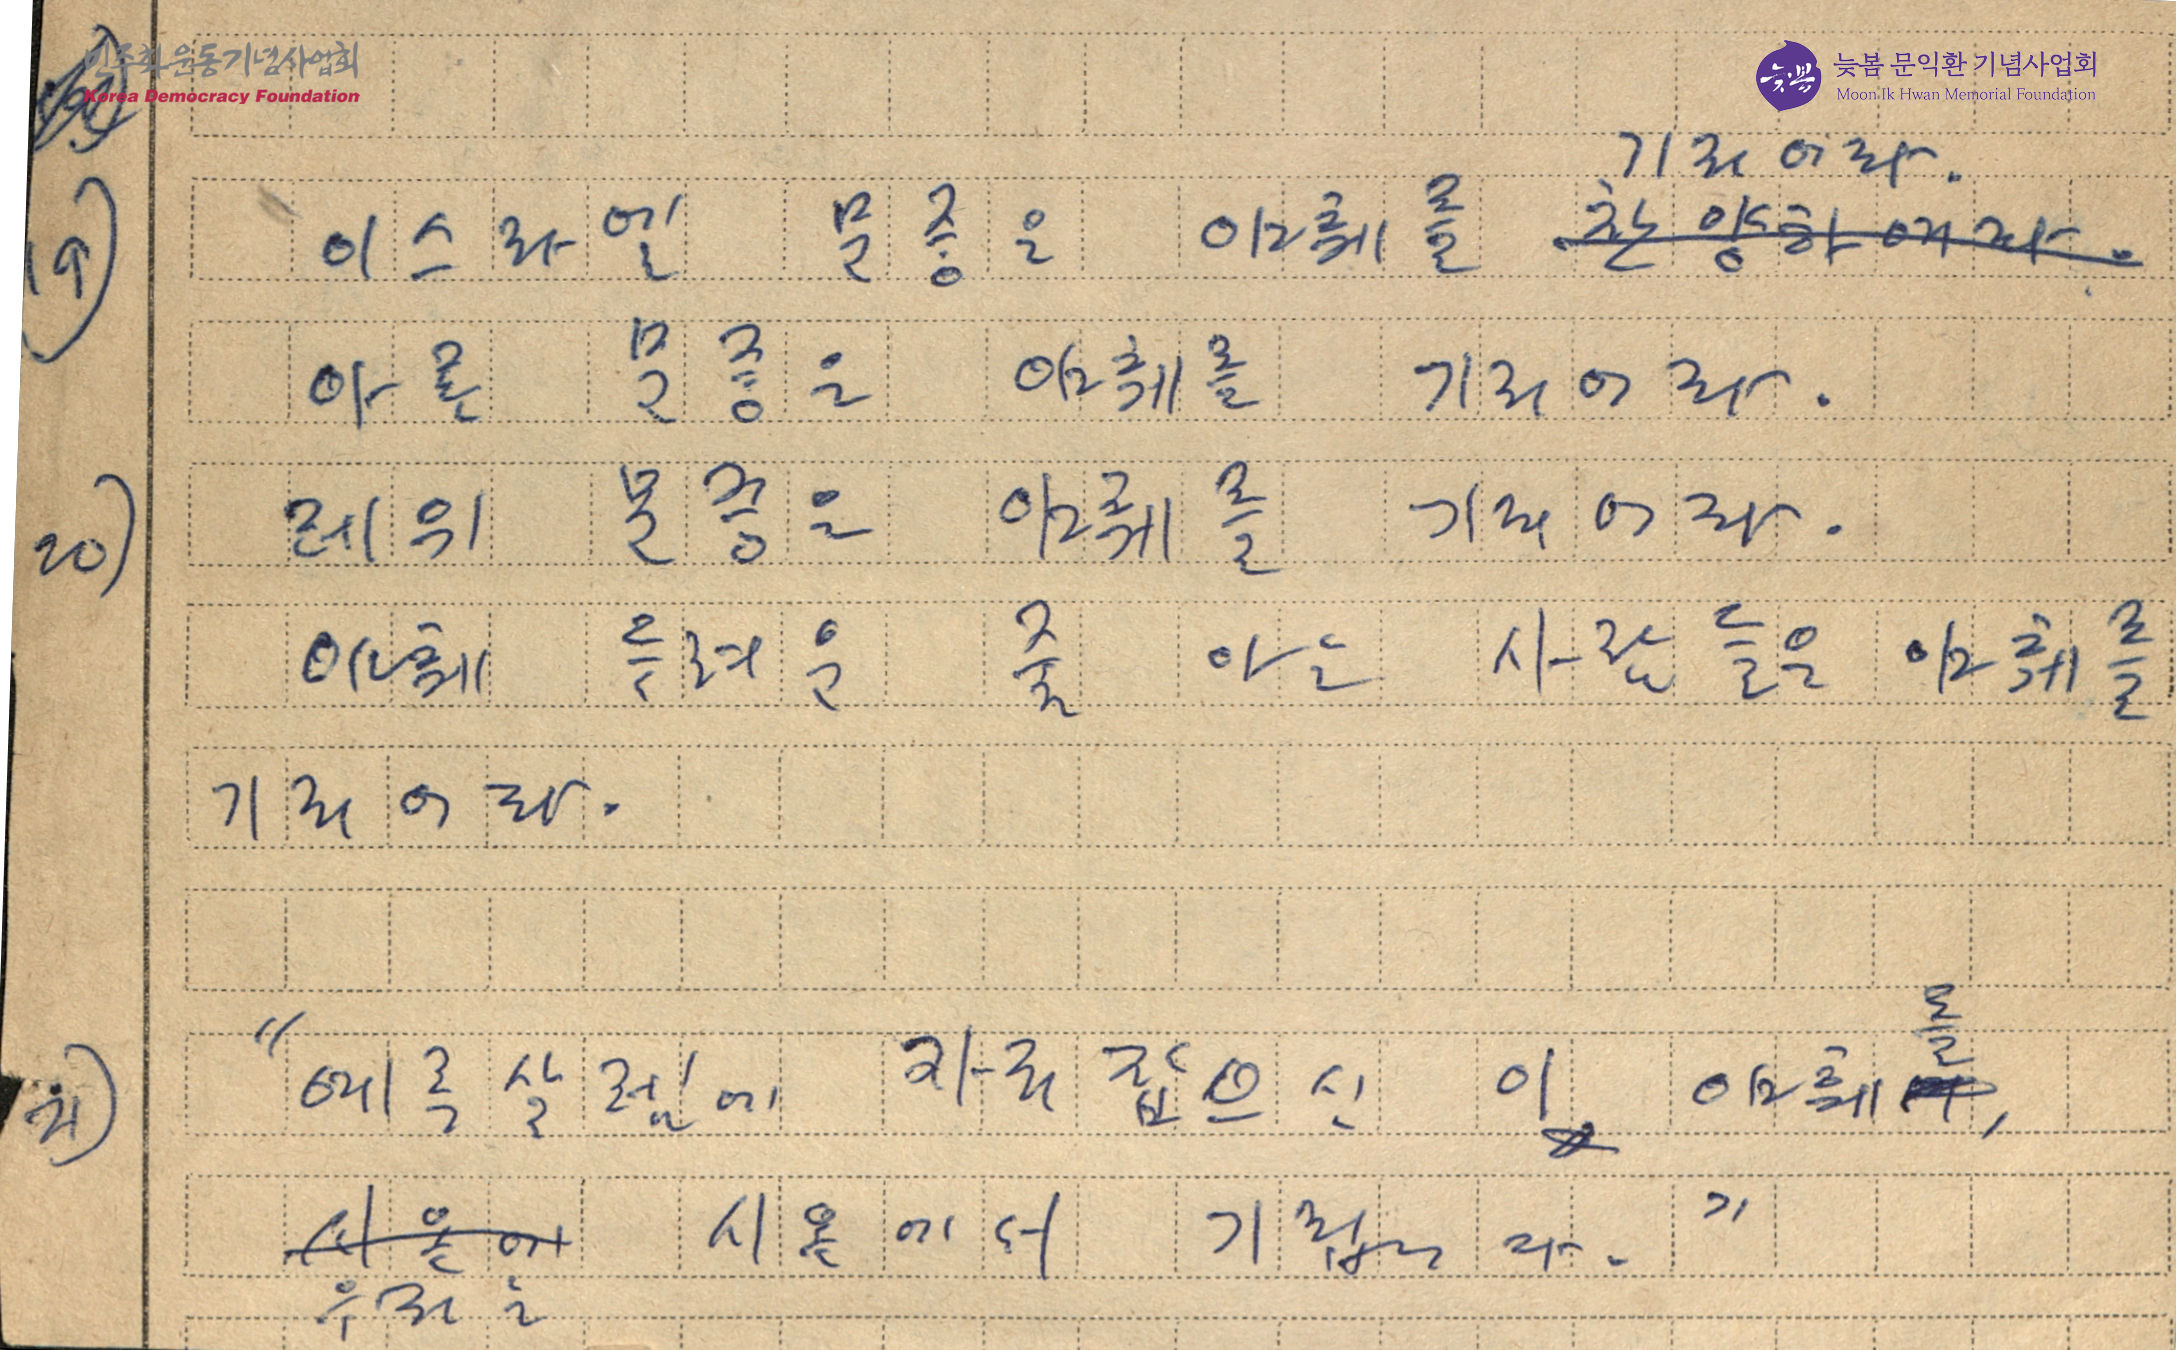 민주화운동기념사업회
Korea Democracy Foundation
늦봄 문익환 기념사업회
Moon Ik Hwan Memorial Foundation
기리어라.
19) 이스라엘 문중은 야훼를 찬양하여라.
아론 문중은 야훼를 기리어라.
20) 레위 문중은 야훼를 기리어라.
야훼 두려운 줄 아는 사람들은 야훼를
기리어라.
를
21) "예루살렘에 자리잡으신 이 야훼,
시온에 시온에서 기립니다."
우리는